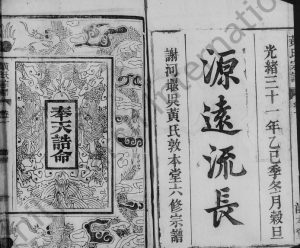 光緒三十一年乙巳季冬月穀旦
源遠流長
謝河環吳黃氏敦本堂六修宗譜
奉天誥命